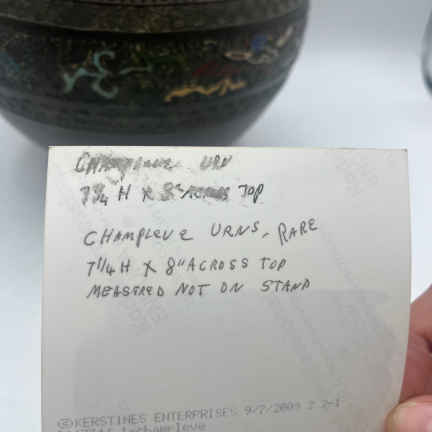 CHAMPLEVE URN
7¼ H X 8" ACROSS TOP
CHAMPLEVE URNS, RARE
7¼ H X 8" ACROSS TOP
MEASURED NOT ON STAND
©KERSTINES ENTERPRISES 9/7/2009